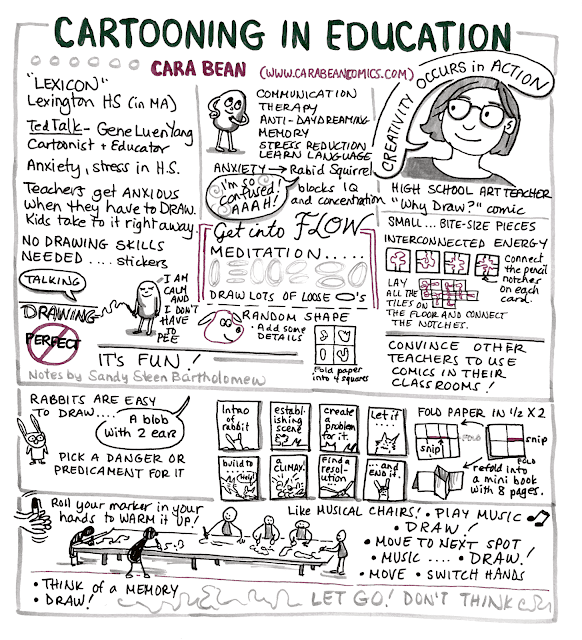 CARTOONING IN EDUCATION
CARA BEAN (WWW.CARABEANCOMICS.COM)
"LEXICON"
Lexington HS (in MA)
TedTalk - Gene Luen Yang
Cartoonist + Educator
Anxiety, stress in H.S.
Teachers get ANXIOUS
when they have to DRAW.
Kids take to it right away.
NO DRAWING SKILLS
NEEDED .... stickers
TALKING
DRAWING
I AM
CALM
AND
I DON'T
HAVE
TO
PEE
PERFECT
IT'S FUN!
Notes by Sandy Steen Bartholomew
COMMUNICATION
THERAPY
ANTI-DAYDREAMING
MEMORY
STRESS REDUCTION
LEARN LANGUAGE
ANXIETY → Rabid Squirrel
blocks IQ
and concentration
I'm so
confused!
AAAH!
Get into FLOW
MEDITATION.....
DRAW LOTS OF LOOSE O's
RANDOM SHAPE
• Add some
DETAILS
Fold paper
into 4 squares
CREATIVITY OCCURS in ACTION
HIGH SCHOOL ART TEACHER
"Why Draw?" comic
SMALL... BITE-SIZE PIECES
INTERCONNECTED ENERGY
connect
the pencil
notches
on each
card.
LAY
ALL THE
TILES ON
THE FLOOR AND CONNECT
THE NOTCHES.
CONVINCE OTHER
TEACHERS TO USE
COMICS IN THEIR
CLASSROOMS!
RABBITS ARE EASY
TO DRAW....
A blob
with 2 ears
PICK A DANGER OR
PREDICAMENT FOR IT
Intro
of
rabbit
establ-
ishing
scene
create
a
problem
for it.
Let it...
build to...
Help!
a
CLIMAX!
Find a
resol-
ution...
...and
END it.
FOLD PAPER IN 1/2 X 2
snip
FOLD
snip
FOLD
refold into
a mini book
with 8 pages.
Roll your marker in your
hands to WARM it UP!
Like MUSICAL CHAIRS! • PLAY MUSIC
• DRAW!
• MOVE TO NEXT SPOT
• MUSIC .... • DRAW!
• MOVE • SWITCH HANDS
• THINK of a MEMORY
• DRAW!
LET GO! DON'T THINK